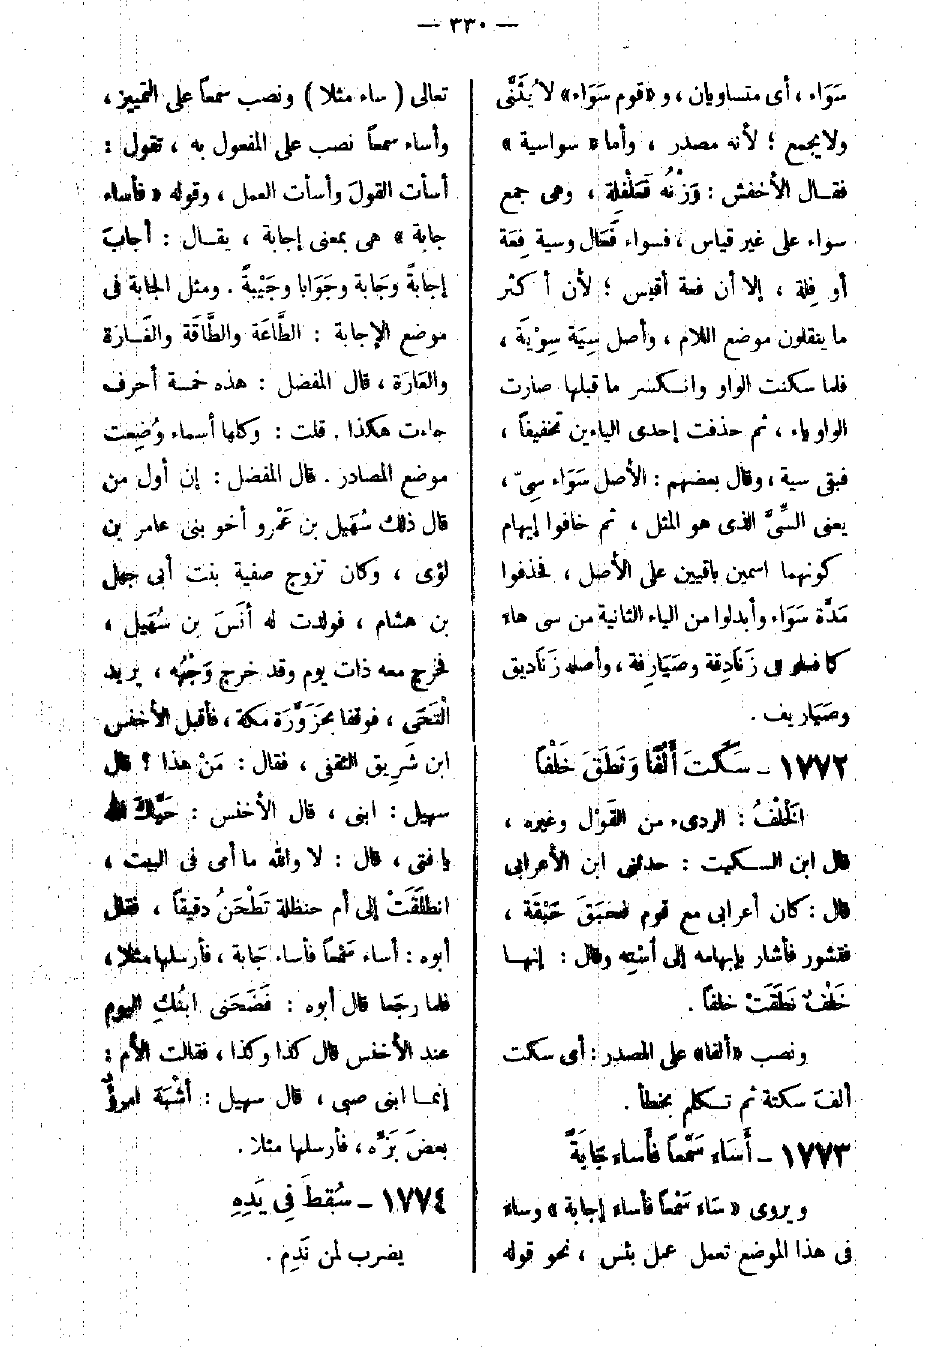 — ٣٣٠ —
سَوَاء ، أى متساويان ، و «قوم سَوَاء» لا يُثَنَّى
ولا يجمع ؛ لأنه مصدر ، وأما « سواسية »
فقال الأخفش : وَزْنُه فَعَلْفِلة ، وهى جمع
سواء على غير قياس ، فسواء فَعَال وسية فِعَة
أو فِلة ، إلا أن فعة أقيس ؛ لأن أكثر
ما ينقلون موضع اللام ، وأصل سِيَة سِوْيَة ،
فلما سكنت الواو وانكسر ما قبلها صارت
الواو ياء ، ثم حذفت إحدى الياءين تخفيفاً ،
فبقى سية ، وقال بعضهم : الأصل سَوَاء سِىّ ،
يعنى السِّىَّ الذى هو المثل ، ثم خافوا إيهام
كونهما اسمين باقيين على الأصل ، فحذفوا
مَدَّة سَوَاء وأبدلوا من الياء الثانية من سى هاء
كما فعلو فى زَنَادِقة وصَيَارِفة ، وأصله زَنَاديق
وصَيَاريف .
١٧٧٢ – سَكَتَ أَلْفًا وَنَطَقَ خَلْفاً
الْخَلْفُ : الردىء من القَوْل وغيره ،
قال ابن السكيت : حدثنى ابن الأعرابى
قال : كان أعرابى مع قوم فحَبَقَ حَبْقَة ،
فتشور فأشار بإبهامه إلى أسْتِه وقال : إنها
خَلْفٌ نَطَقَتْ خلفاً .
ونصب «ألفا» على المصدر : أى سكت
ألفَ سكتة ثم تكلم بخطأ .
١٧٧٣ – أَسَاء سَمْعاً فَأَساء جَابَةً
ويروى « سَاء سَمْعاً فأساء إجابة » وساء
فى هذا الموضع تعمل عمل بئس ، نحو قوله
تعالى ( ساء مثلا ) ونصب سمعاً على التمييز ،
وأساء سمعاً نصب على المفعول به ، تقول :
أسأت القولَ وأسأت العمل ، وقوله « فأساء
جابة » هى بمعنى إجابة ، يقال : أجابَ
إجابةً وجَابة وجَوَابا وجَيْبةً . ومثل الجابة فى
موضع الإجابة : الطَّاعَة والطَّاقَة والغَارة
والعَارَة ، قال المفضل : هذه خمسة أحرف
جاءت هكذا . قلت : وكلها أسماء وُضِعت
موضع المصادر . قال المفضل : إن أول من
قال ذلك سُهَيل بن عَمْرو أخو بنى عامر بن
لؤى ، وكان تزوج صفية بنت أبى جهل
بن هشام ، فولدت له أنَسَ بن سُهَيل ،
فخرج معه ذات يوم وقد خرج وَجْهُه ، يريد
الْتَحَى ، فوقفا بحَزَوَّرَة مكة ، فأقبل الأخنس
ابن شَرِيق الثقفى ، فقال : مَنْ هذا ؟ قال
سهيل : ابنى ، قال الأخنس : حَيَّاكَ الله
يا فتى ، قال : لا والله ما أمى فى البيت ،
انطلَقَتْ إلى أم حنظلة تَطْحَنُ دقيقاً ، فقال
أبوه : أساء سَمْعاً فأساء جَابة ، فأرسلها مثلا ،
فلما رجَعا قال أبوه : فَضَحَنى ابنُكِ اليوم
عند الأخنس قال كذا وكذا ، فقالت الأم :
إنما ابنى صبى ، قال سهيل : أشْبَهَ امرؤٌ
بعضَ بَزِّه ، فأرسلها مثلا .
١٧٧٤ – سُقِطَ فِى يَدِهِ
يضرب لمن نَدِم .